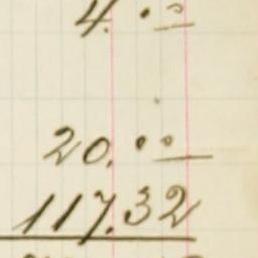 4.00
20.00
117.32